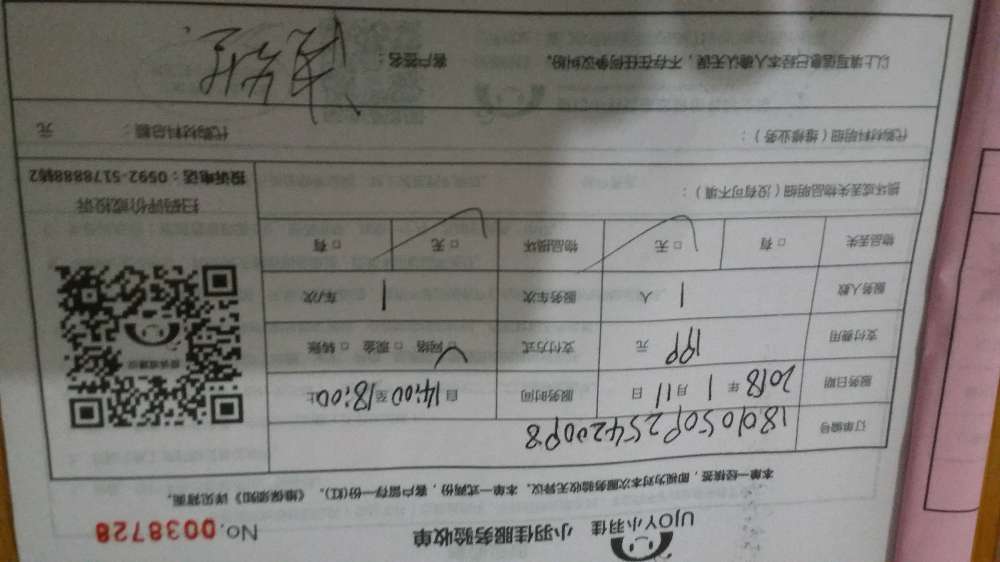 UJOY小羽佳 小羽佳服务验收单 No. 0038728
本单一经核签，即视为对本次服务验收无异议。本单一式两份，客户留存一份(红)。《维保须知》详见背面。
订单编号 1801050925420098
服务日期 2018 年 1 月 11 日 服务时间 自 14:00 至 18:00 止
支付费用 199 元 支付方式 □ 网络 □ 现金 □ 转账
服务人数 1 人 服务车次 1 车/次
物品丢失 □ 有 □ 无 物品损坏 □ 无 □ 有
损坏或丢失物品明细（没有可不填）：
扫码评价或投诉
投诉电话：0592-5178888转2
代购材料明细（维修业务）： 代购材料总额： 元
以上填写信息已经本人确认无误，不存在任何争议纠纷。 客户签名：